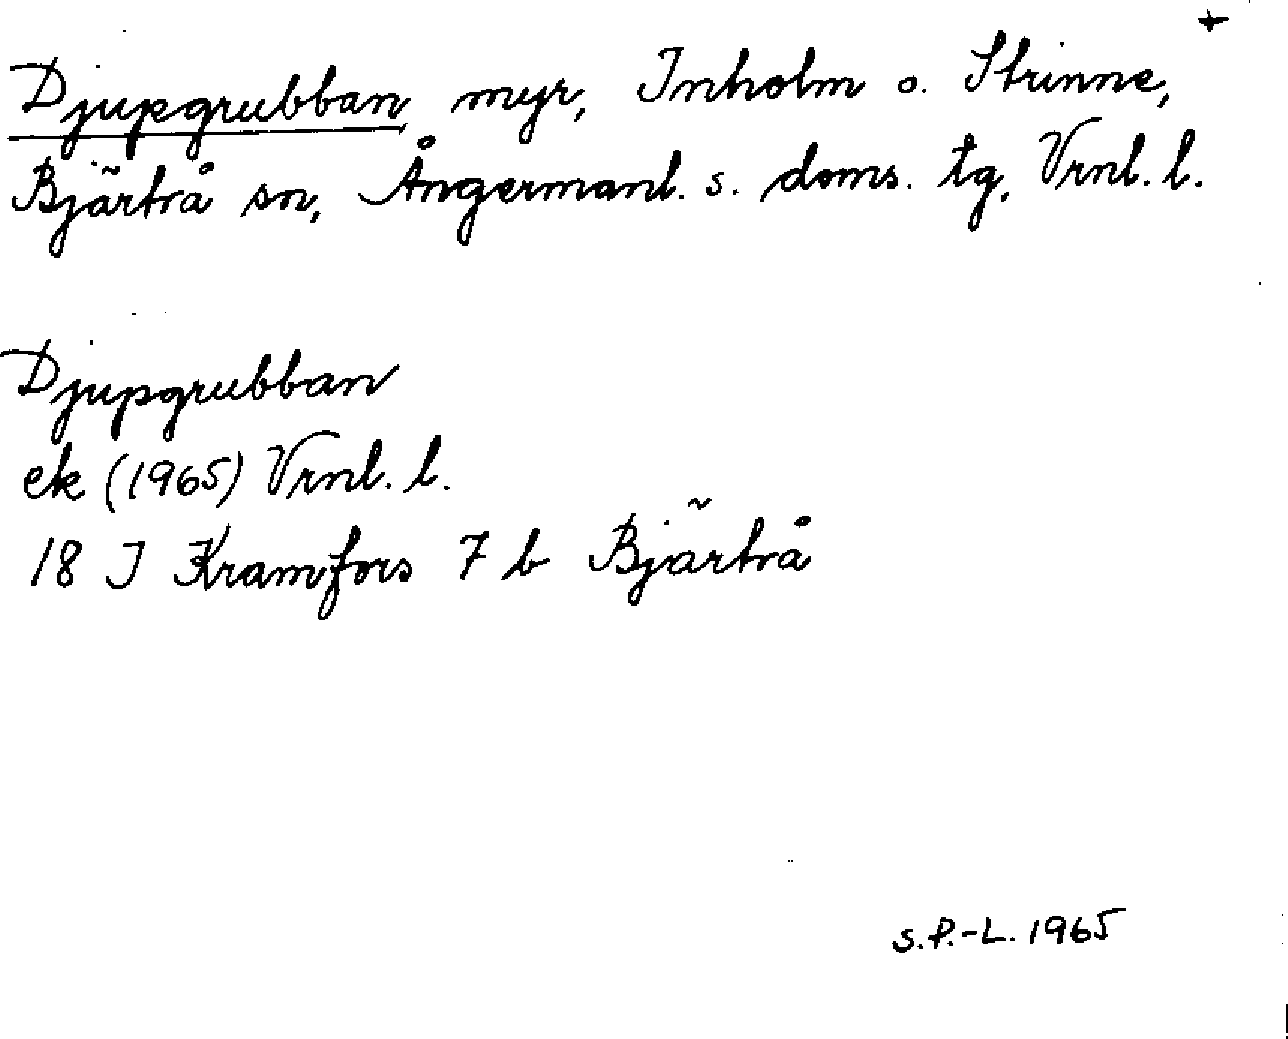 +
Djupgrubban myr, Inholm o. Strinne,
Bjärtrå sn, Ångermanl. s. doms. tg, Vrnl. l.
Djupgrubban
ek (1965) Vrnl. l.
18 J Kramfors 7 b Bjärtrå
S.P.-L. 1965